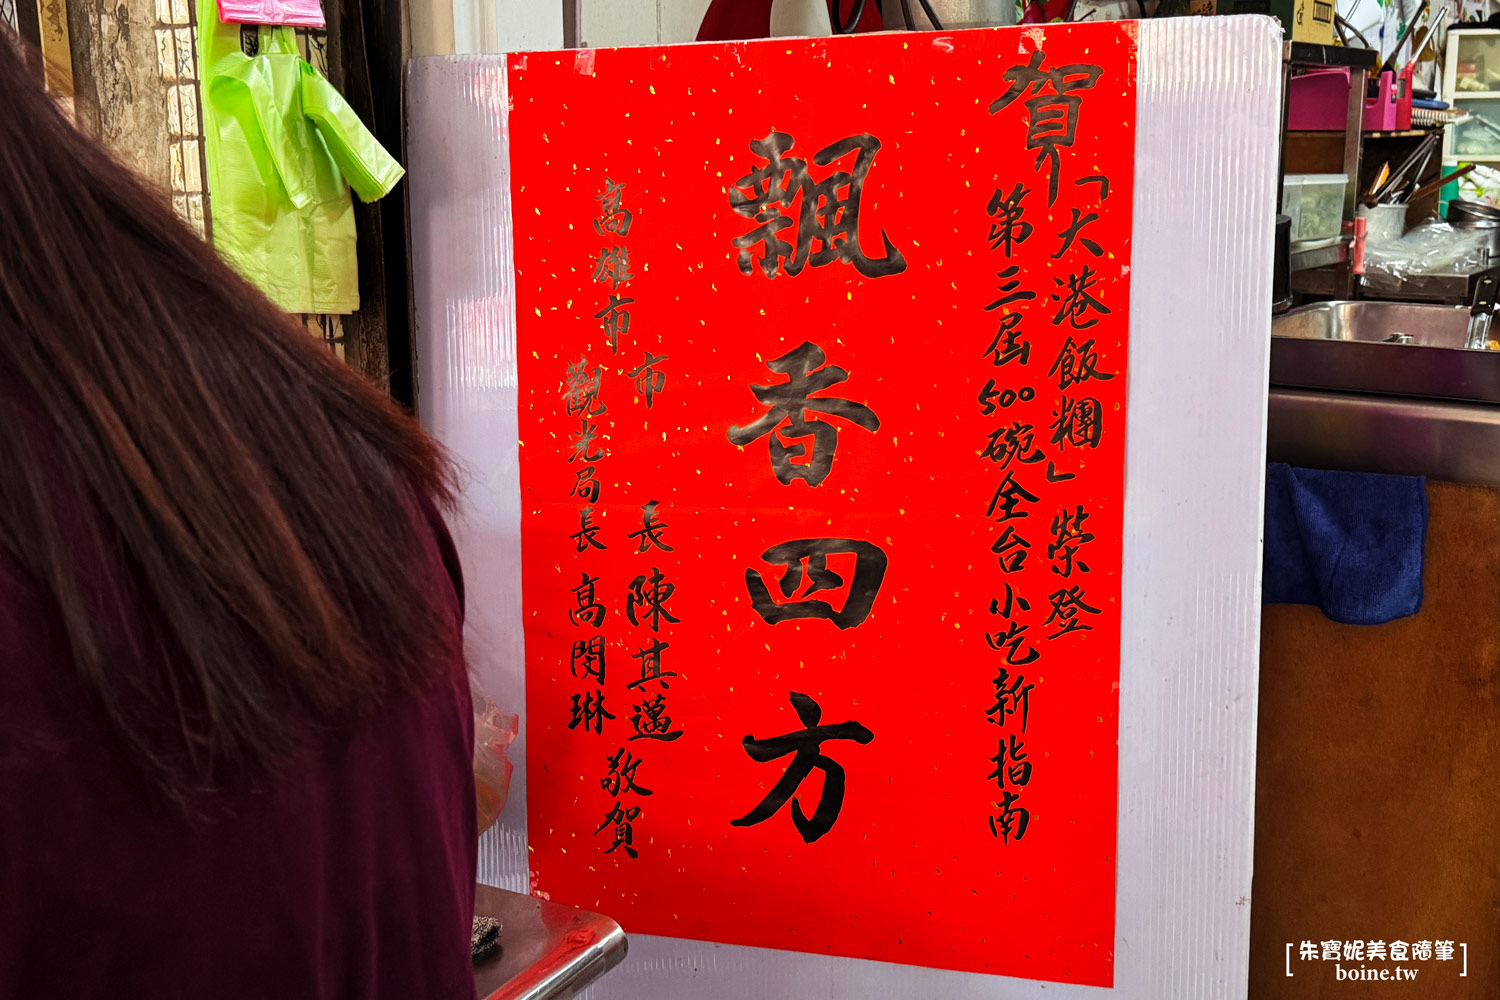 賀「大港飯糰」榮登
第三屆500碗全台小吃新指南
飄香四方
市長陳其邁
高雄市
觀光局長高閔琳
敬賀
[朱寶妮美食隨筆]
boine.tw